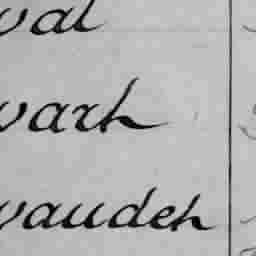 val
varh
vaudeh